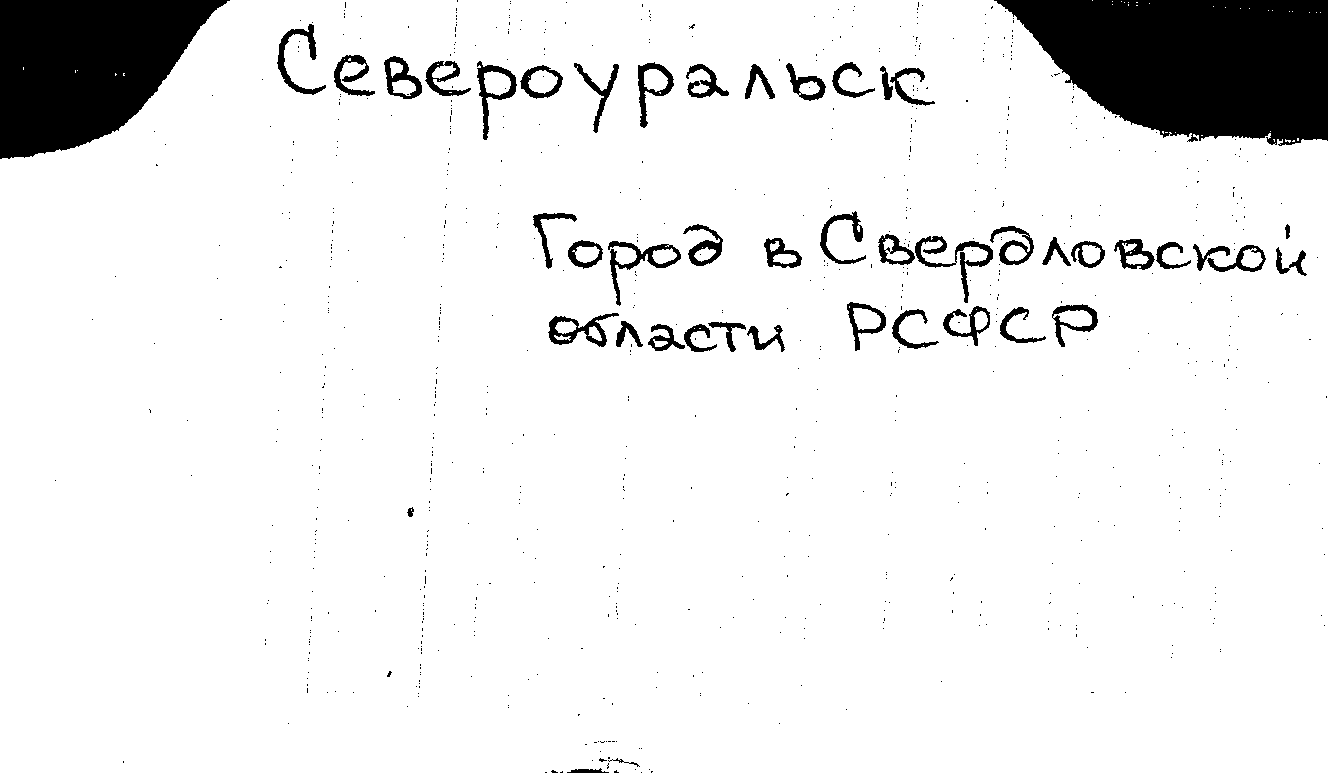 Североуральск
Город в Свердловской
области РСФСР